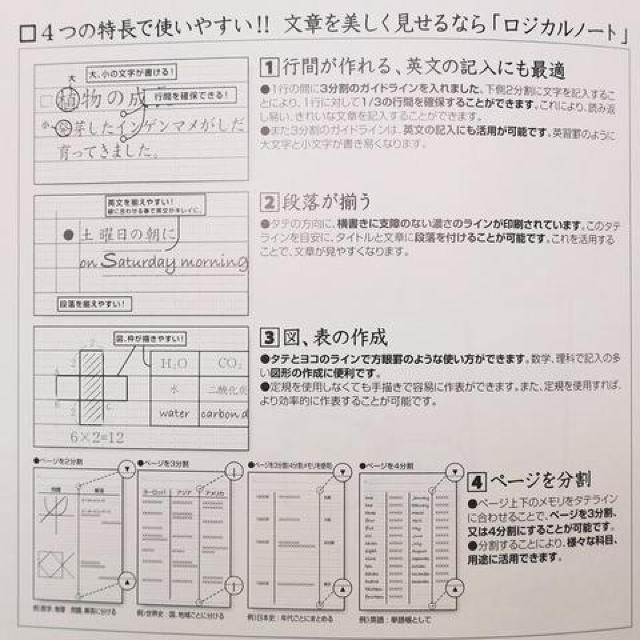 □4つの特長で使いやすい!! 文章を美しく見せるなら「ロジカルノート」
大、小の文字が書ける!
大
植物の成
行間を確保できる!
小
発芽したインゲンマメがしだ
育ってきました。
1 行間が作れる、英文の記入にも最適
●1行の間に3分割のガイドラインを入れました。下側2分割に文字を記入するこ
とにより、1行に対して1/3の行間を確保することができます。これにより、読み返
し易い、きれいな文章を記入することができます。
●また3分割のガイドラインは、英文の記入にも活用が可能です。英習罫のように
大文字と小文字が書き易くなります。
英文を揃えやすい!
線に合わせる事で英文がキレイに。
●土曜日の朝に
on Saturday morning
段落を揃えやすい!
2 段落が揃う
●タテの方向に、横書きに支障のない濃さのラインが印刷されています。このタテ
ラインを目安に、タイトルと文章に段落を付けることが可能です。これを活用する
ことで、文章が見やすくなります。
図、枠が描きやすい!
2
2
2
H₂O
CO₂
水
二酸化炭
water
carbon d
6×2=12
3 図、表の作成
●タテとヨコのラインで方眼罫のような使い方ができます。数学、理科で記入の多
い図形の作成に便利です。
●定規を使用しなくても手描きで容易に作表ができます。また、定規を使用すれば、
より効率的に作表することが可能です。
●ページを2分割
問題
解答
例)数学、物理 問題、解答に分ける
●ページを3分割
ヨーロッパ
アジア
アメリカ
例)世界史:国、地域ごとに分ける
●ページを3分割(4分割メモリを使用)
例)日本史:年代ごとにまとめる
●ページを4分割
例)英語:単語帳として
4 ページを分割
●ページ上下のメモリをタテライン
に合わせることで、ページを3分割、
又は4分割にすることが可能です。
●分割することにより、様々な科目、
用途に活用できます。